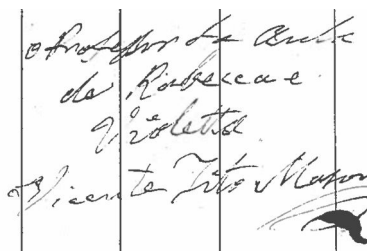 o Professor da Aula
de Rabecca e
Violetta
Vicente Tito Mason